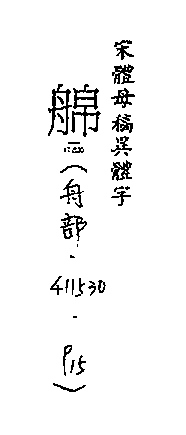 宋體母稿異體字
（舟部．411530．P15）